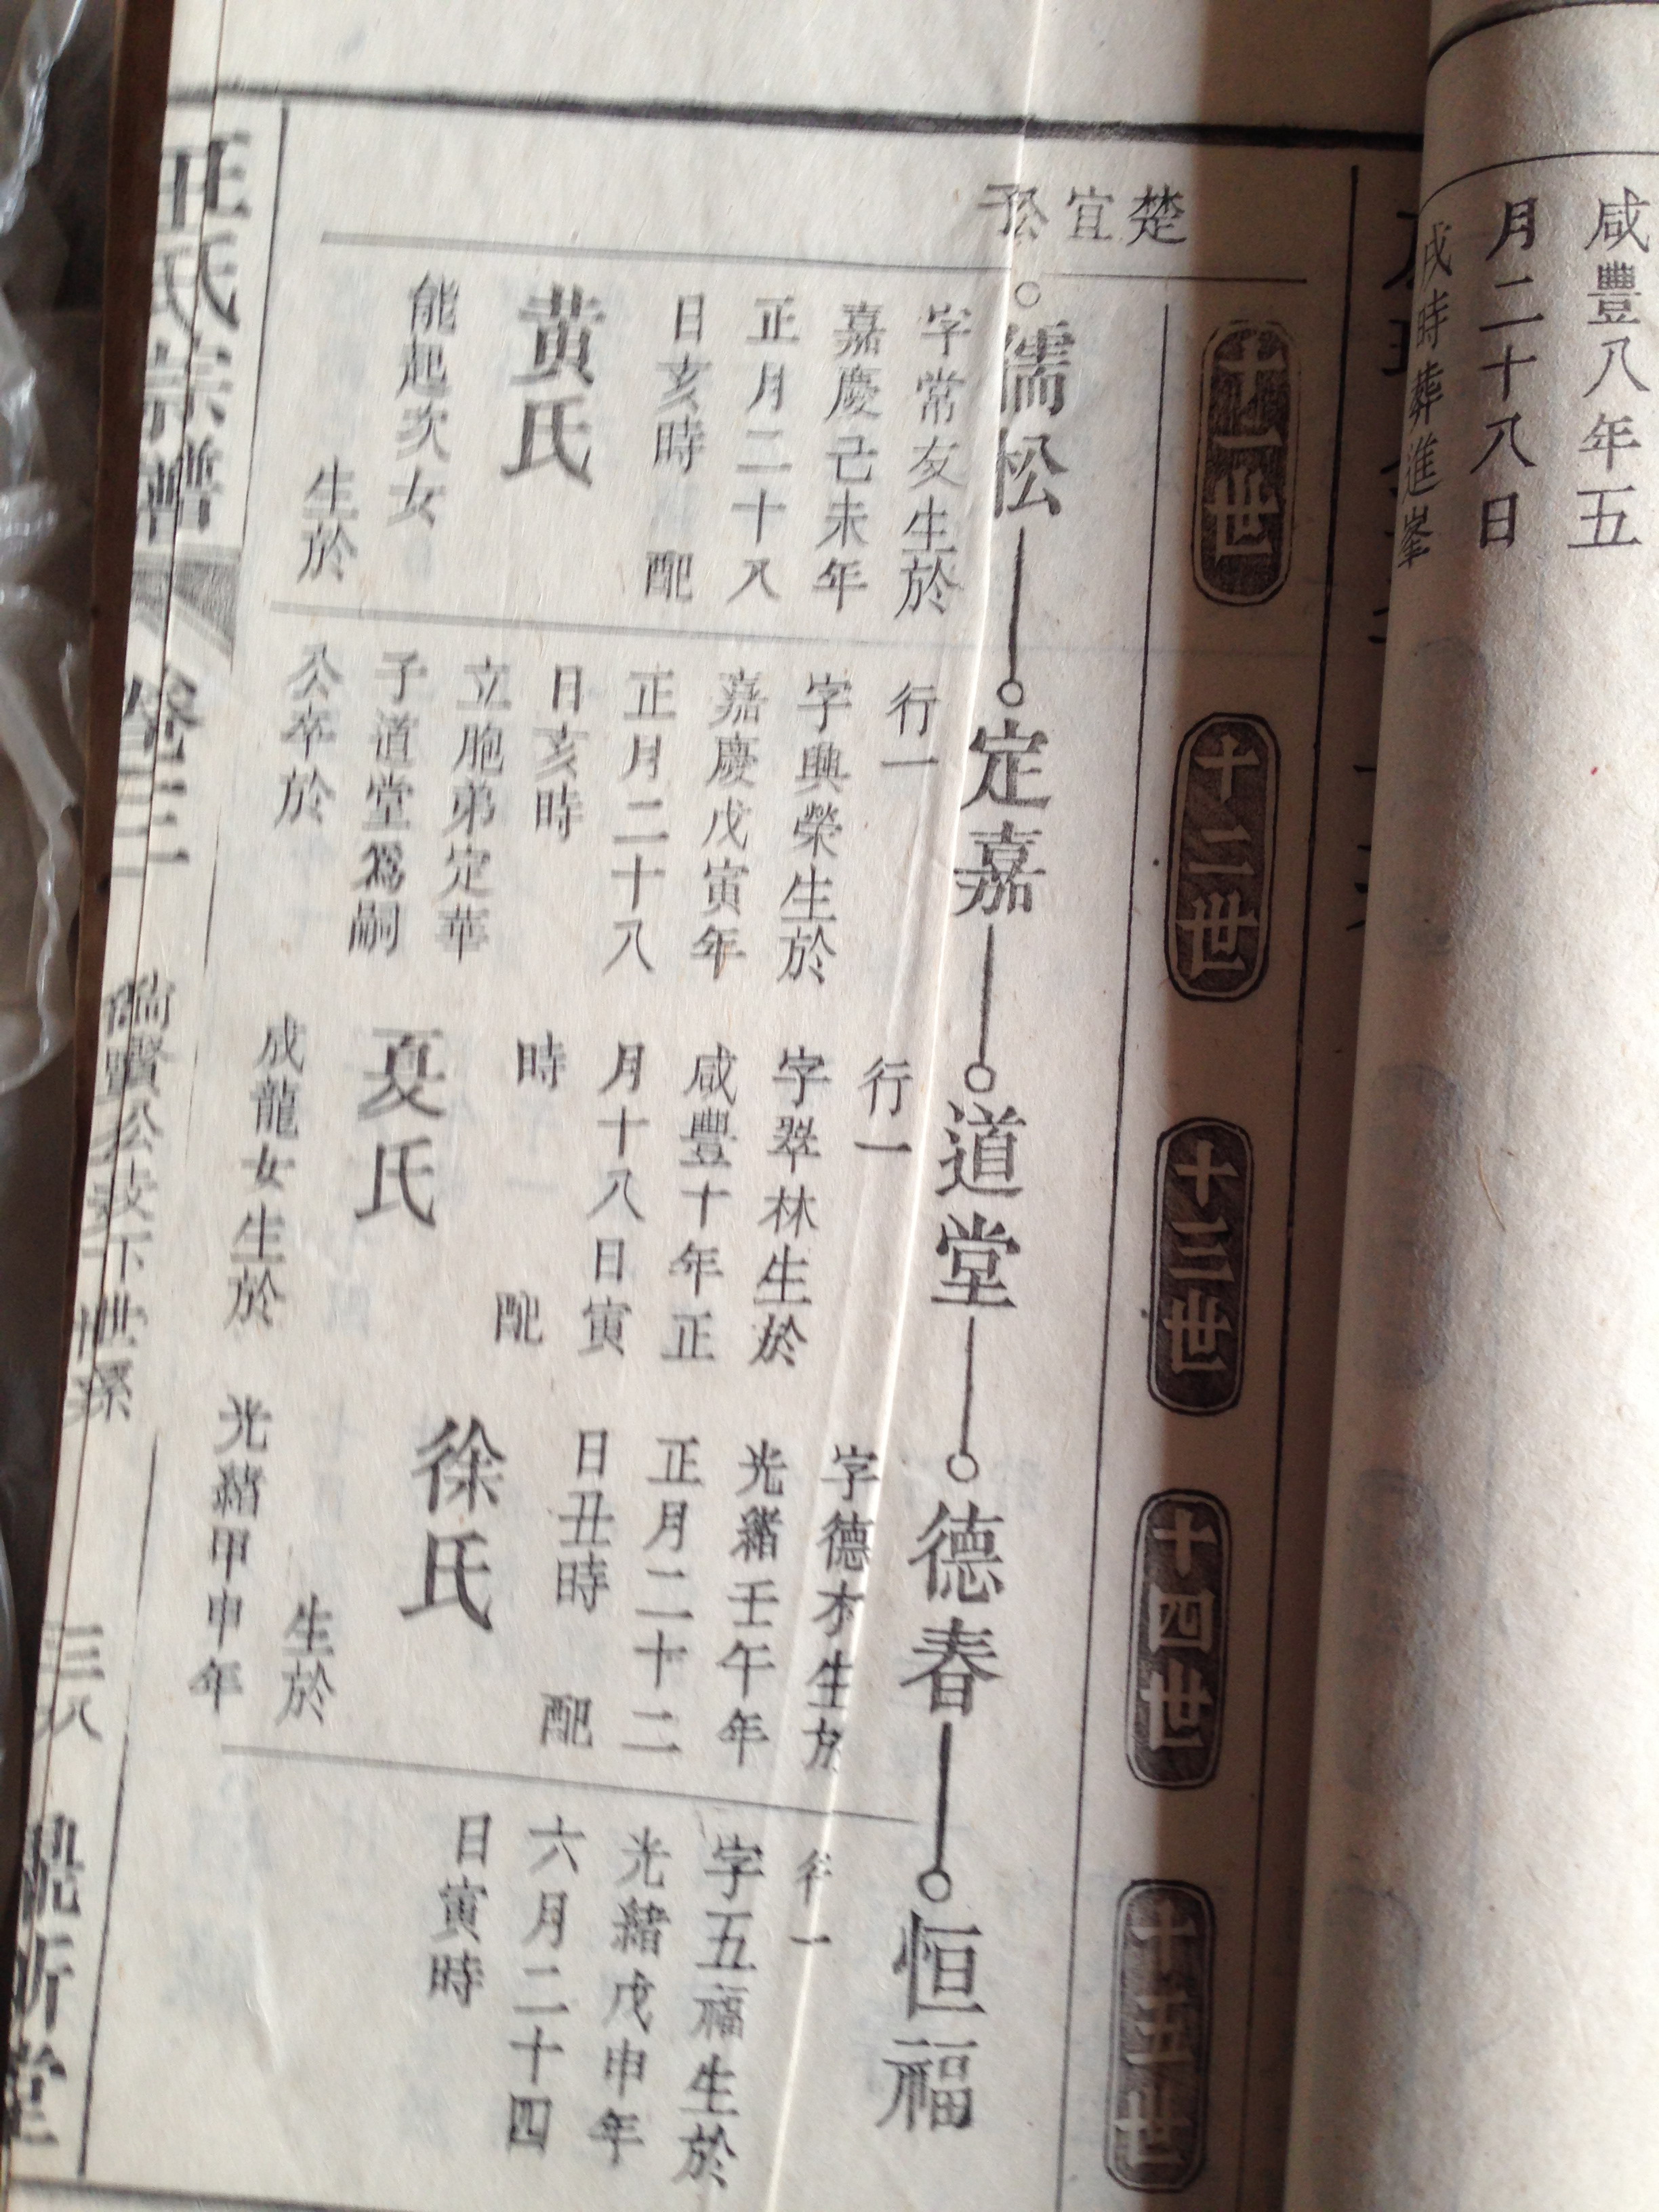 咸豐八年五
月二十八日
戌時葬進峯
十一世
十二世
十三世
十四世
十五世
楚宜公子
儒松
字常友生於
嘉慶己未年
正月二十八
日亥時 配
黃氏
能起次女
生於
定嘉
行一
字興榮生於
嘉慶戊寅年
正月二十八
日亥時
立胞弟定華
子道堂爲嗣
公卒於
道堂
行一
字翠林生於
咸豐十年正
月十八日寅
時 配
夏氏
成龍女生於
德春
字德木生於
光緒壬午年
正月二十二
日丑時 配
徐氏
生於
光緒甲申年
恒福
行一
字五福生於
光緒戊申年
六月二十四
日寅時
王氏宗譜 卷三 公下世系 三八 堂